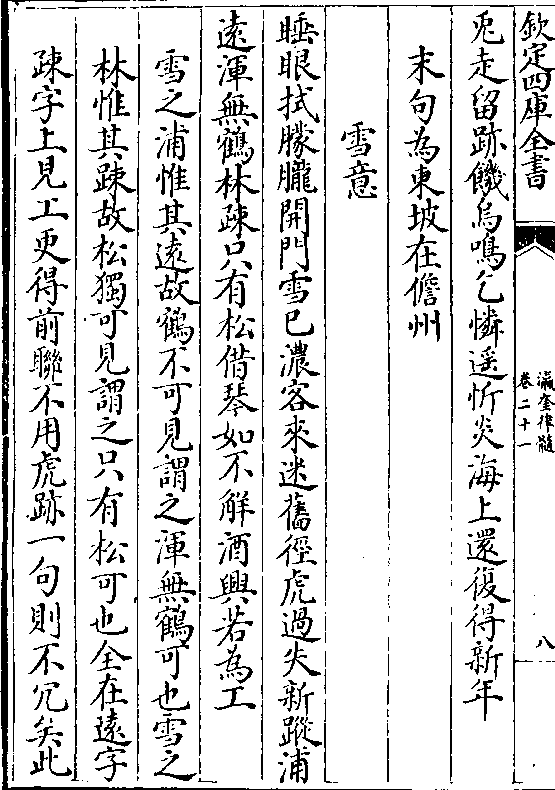 欽定四庫全書
瀛奎律髓
卷二十一
八
兎走留跡饑烏鳴乞憐遥忻炎海上還復得新年
末句為東坡在儋州
雪意
睡眼拭朦朧開門雪已濃客來迷舊徑虎過失新蹤浦
遠渾無鶴林疎只有松借琴如不解酒興若為工
雪之浦惟其遠故鶴不可見謂之渾無鶴可也雪之
林惟其疎故松獨可見謂之只有松可也全在遠字
疎字上見工更得前聯不用虎跡一句則不冗矣此